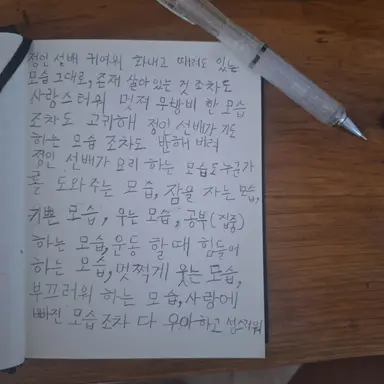 정인 선배 귀여워 화내고 때려도 있는
모습 그대로, 존재 살아 있는 것 조차도
사랑스러워 멋져 무방비 한 모습
조차도 고귀해 정인 선배가 기도
하는 모습 조차도 반해 버려
정인 선배가 요리 하는 모습도 누군가
를 도와주는 모습, 잠을 자는 모습,
기쁜 모습, 우는 모습, 공부(집중)
하는 모습, 운동 할 때 힘들어
하는 모습, 멋쩍게 웃는 모습,
부끄러워 하는 모습, 사랑에
빠진 모습 조차 다 우아하고 성스러워